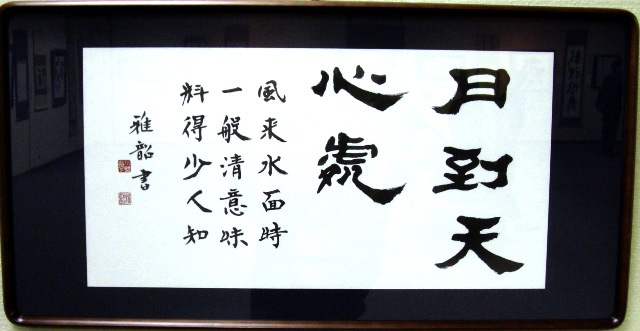 月到天
心處
風来水面時
一般清意味
料得少人知
雅韶書